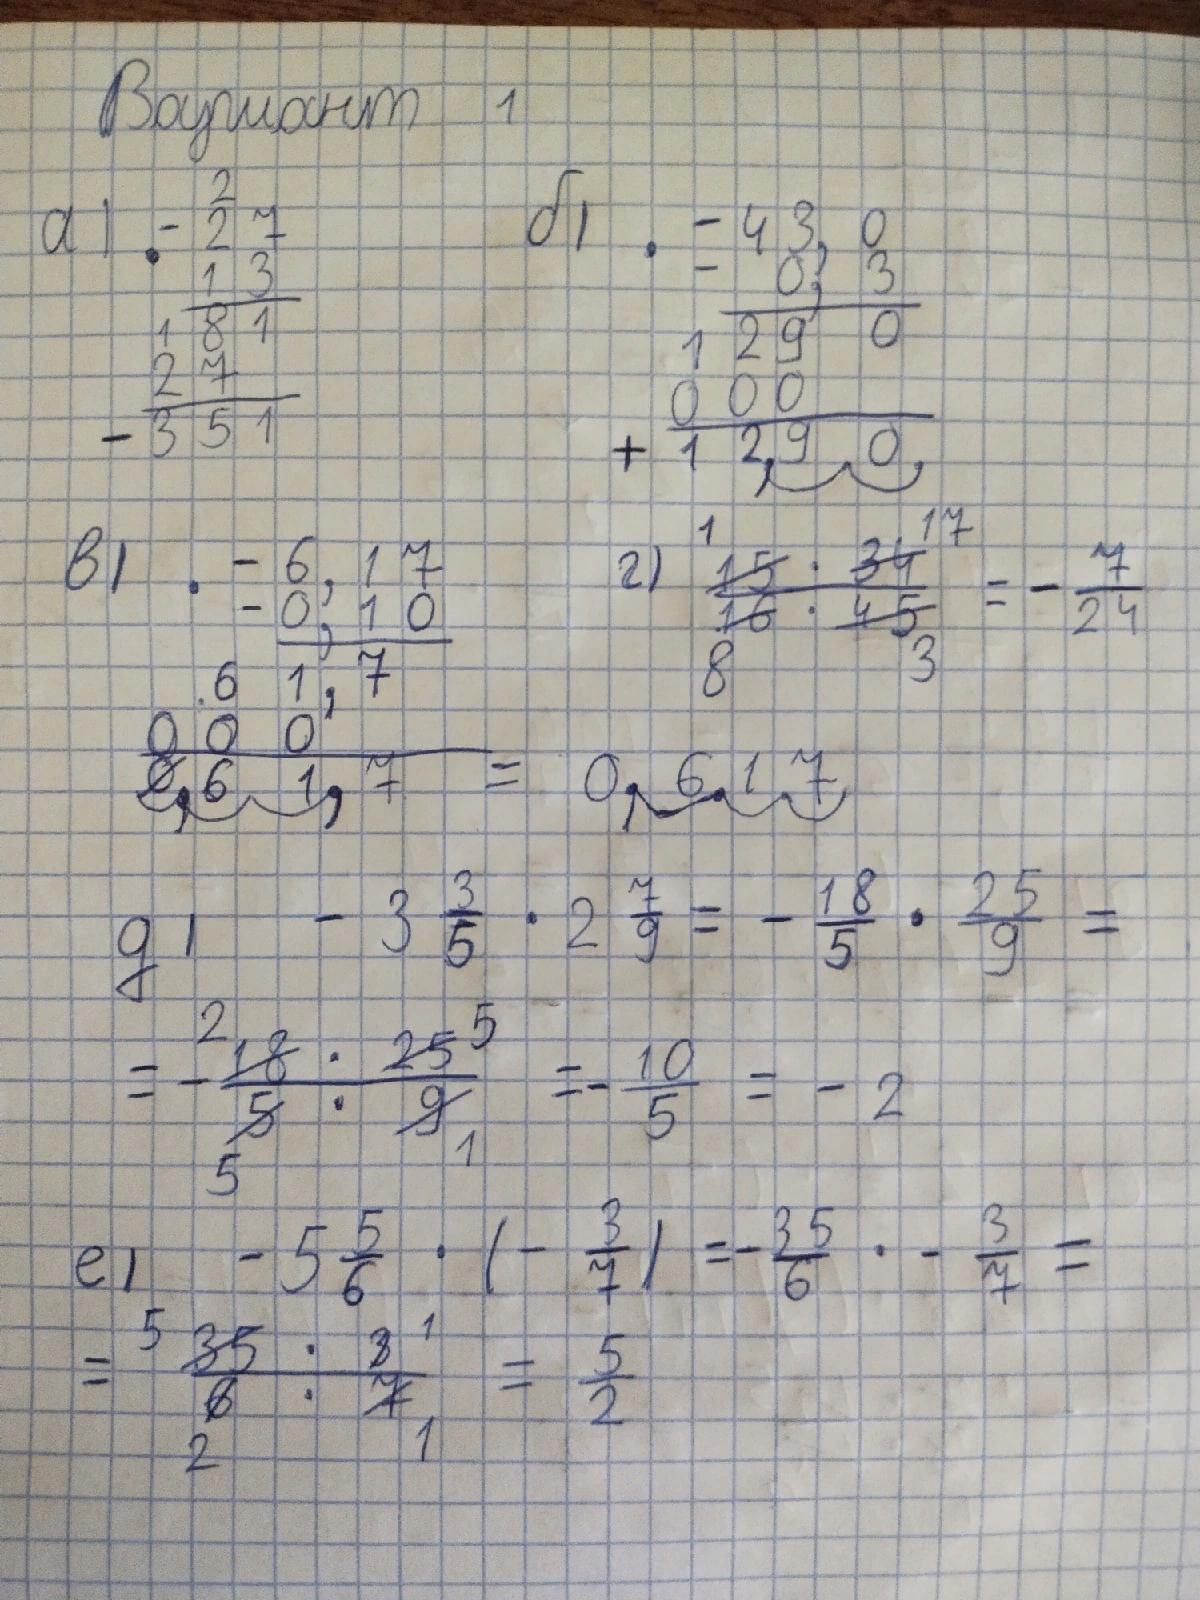 Вариант 1
2
а) · - 27
13
181
27
- 351
б) · - 43,0
- 0,3
129 0
000
+ 12,9 0
в) · - 6,17
- 0,10
61,7
000
0,61,7 = 0,617
г) 1 15 · 34 17 / 16 · 45 = - 7/24
8 3
д) - 3 3/5 · 2 7/9 = - 18/5 · 25/9 =
= - 2 18 · 25 5 / 5 · 9 = - 10/5 = - 2
5 1
е) - 5 5/6 · (- 3/7) = - 35/6 · - 3/7 =
= 5 35 · 3 1 / 6 · 7 = 5/2
2 1